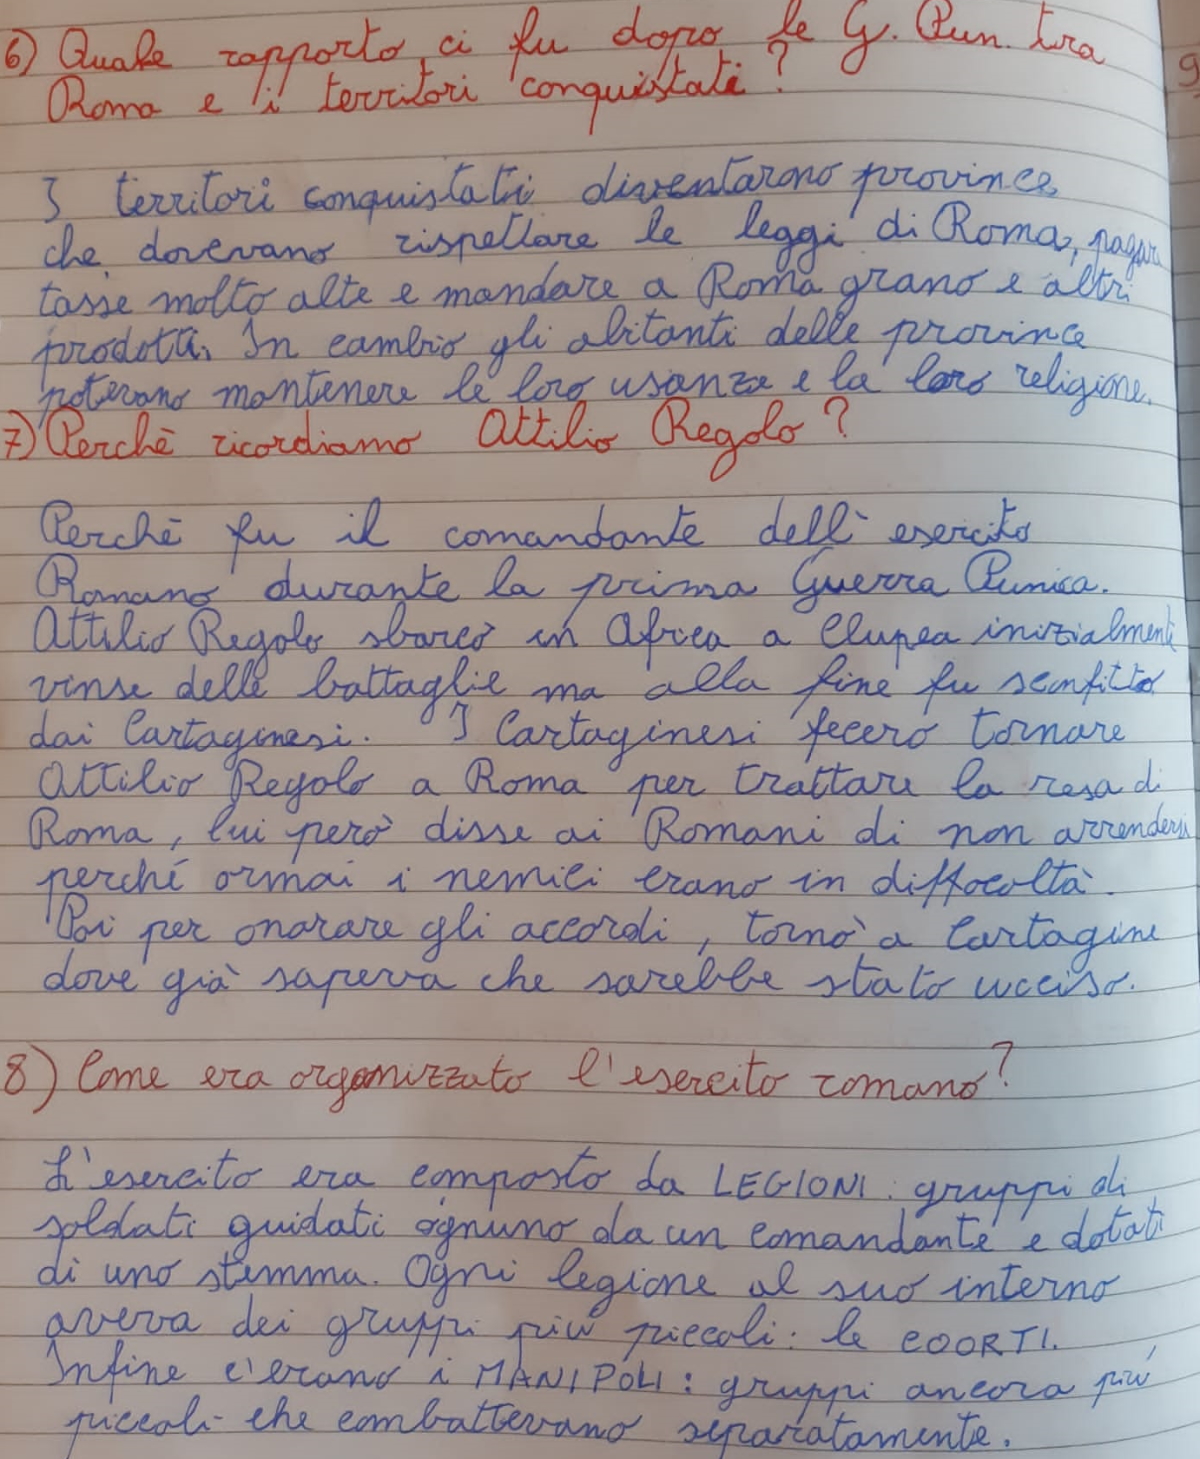 6) Quale rapporto ci fu dopo le G. Pun. tra
Roma e i territori conquistati?
I territori conquistati diventarono province
che dovevano rispettare le leggi di Roma, pagare
tasse molto alte e mandare a Roma grano e altri
prodotti. In cambio gli abitanti delle province
potevano mantenere le loro usanze e la loro religione.
7) Perchè ricordiamo Attilio Regolo?
Perchè fu il comandante dell'esercito
Romano durante la prima Guerra Punica.
Attilio Regolo sbarcò in Africa a Clupea inizialmente
vinse delle battaglie ma alla fine fu sconfitto
dai Cartaginesi. I Cartaginesi fecero tornare
Attilio Regolo a Roma per trattare la resa di
Roma, lui però disse ai Romani di non arrendersi
perché ormai i nemici erano in diffocoltà.
Poi per onorare gli accordi, tornò a Cartagine
dove già sapeva che sarebbe stato ucciso.
8) Come era organizzato l'esercito romano?
L'esercito era composto da LEGIONI: gruppi di
soldati guidati ognuno da un comandante e dotati
di uno stemma. Ogni legione al suo interno
aveva dei gruppi più piccoli: le COORTI.
Infine c'erano i MANIPOLI: gruppi ancora più
piccoli che combattevano separatamente.
9